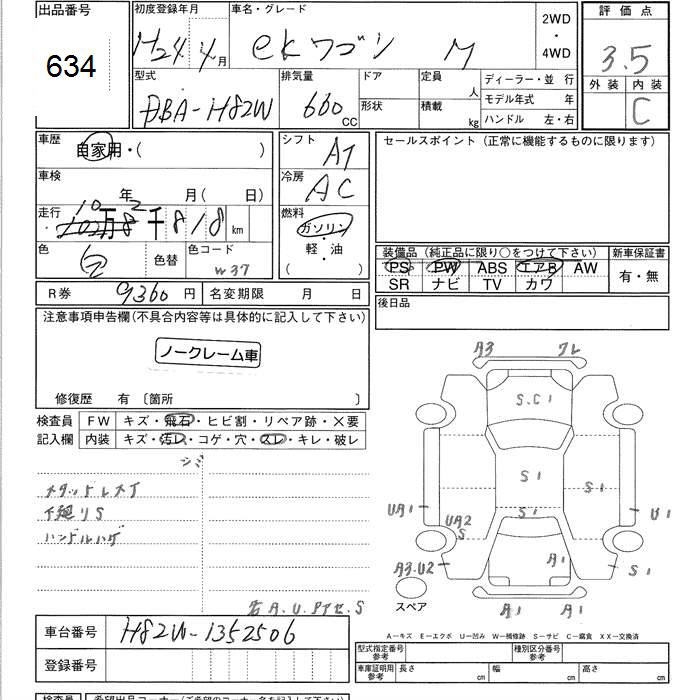 出品番号 初度登録年月 車名・グレード 2WD・4WD 評価点
634 H24年4月 ekワゴン M 3.5
外装 内装 C
型式 排気量 ドア 定員 人 ディーラー・並行
DBA-H82W 660 CC 形状 積載 kg モデル年式 年
ハンドル 左・右
車歴 自家用・( ) シフト AT セールスポイント(正常に機能するものに限ります)
車検 年 月( 日) 冷房 AC
走行 10万2千818 km 燃料 ガソリン・軽・油 ( )
色 色替 色コード W37
装備品(純正品に限り○をつけて下さい) 新車保証書
PS PW ABS エアB AW 有・無
SR ナビ TV カワ
R券 9360円 名変期限 月 日 後日品
注意事項申告欄(不具合内容等は具体的に記入して下さい)
ノークレーム車
修復歴 有 〔箇所 〕
検査員 FW キズ・飛石・ヒビ割・リペア跡・×要
記入欄 内装 キズ・汚レ・コゲ・穴・スレ・キレ・破レ
シミ
スタッドレスイ
下廻リS
ハンドルハゲ
A3 ワレ
S.C1
S1
S1
S1
UA1 UA2 S U1
A3.U2 A1 S1
スペア A1 A1
車台番号 H82W-1352506
登録番号
A-キズ E-エクボ U-凹み W-補修跡 S-サビ C-腐食 XX-交換済
型式指定番号 参考 種別区分番号 参考
車庫証明用 参考 長さ cm 幅 cm 高さ cm
検査員 希望出品コーナー(ご希望のコーナー名を記入